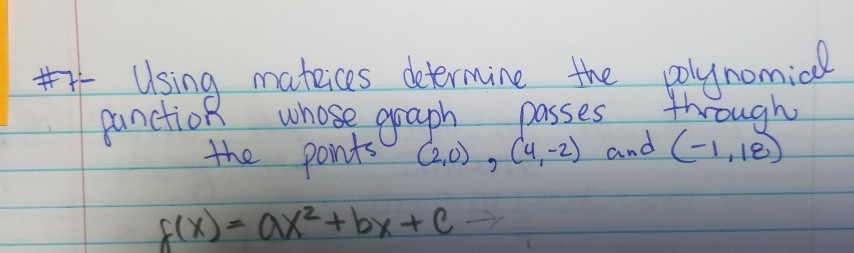 #7- Using matrices determine the polynomial
function whose graph passes through
the points (2,0), (4,-2) and (-1,18)
f(x) = ax² + bx + c →